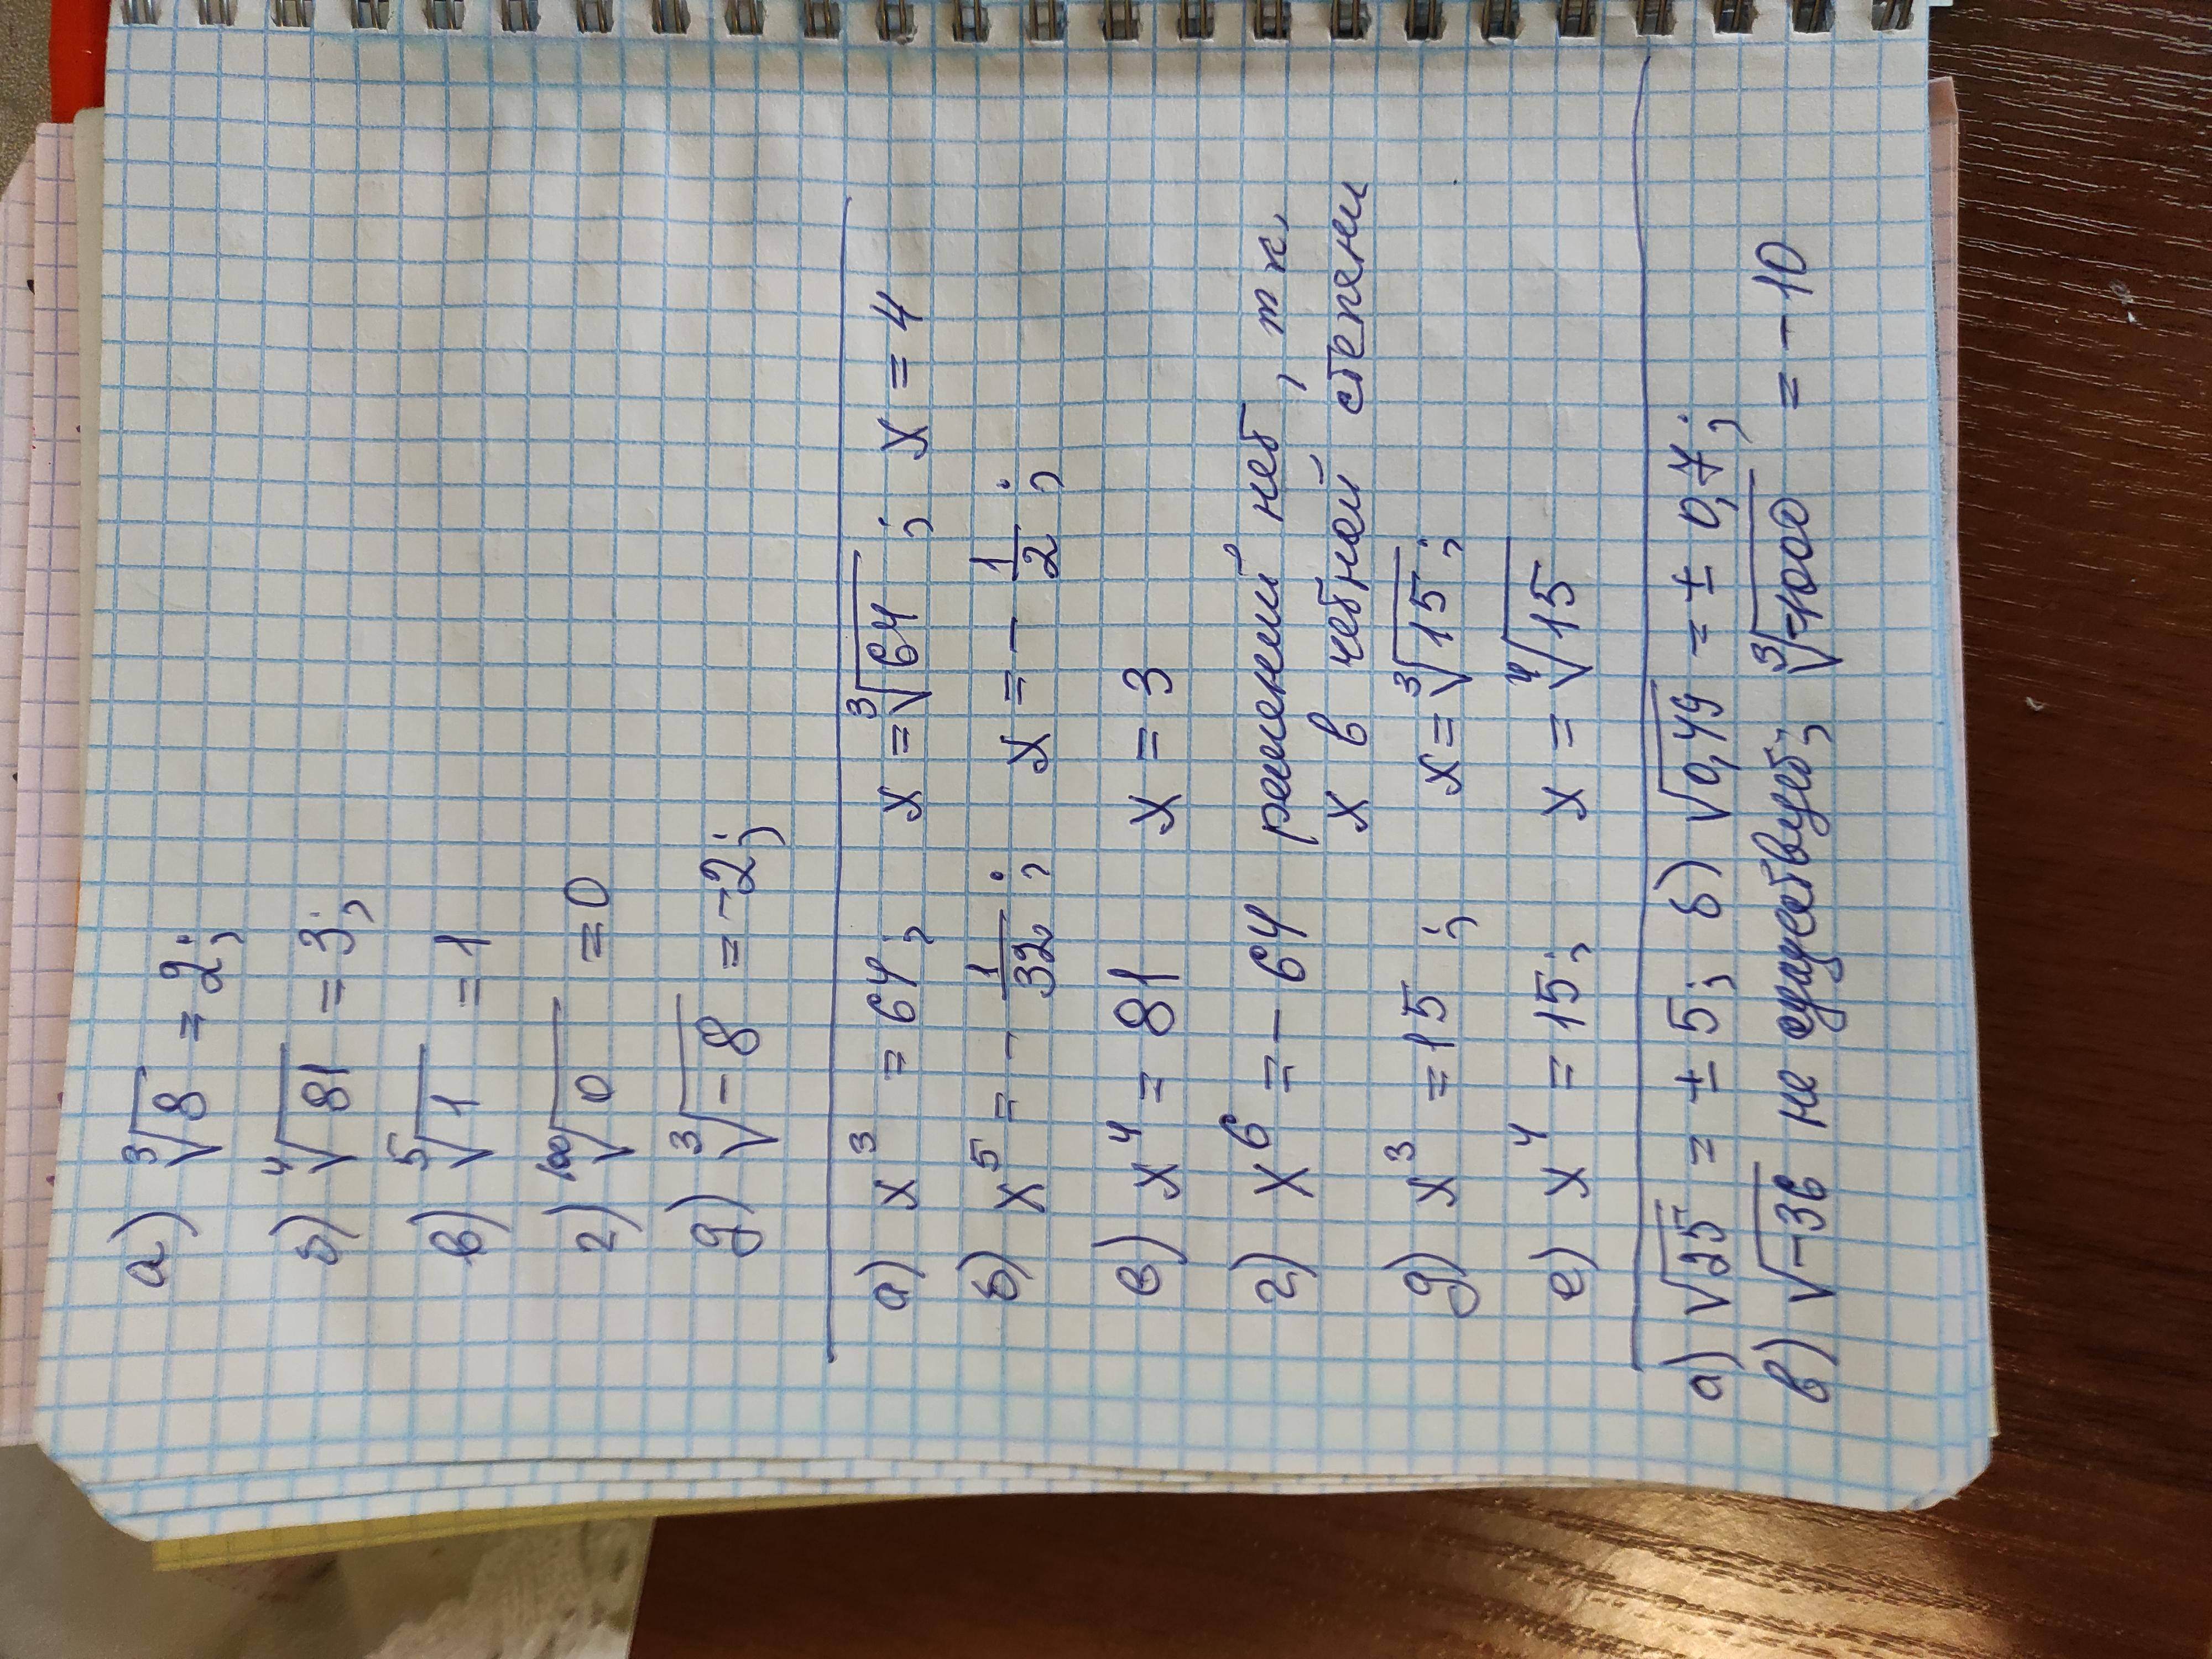 а) ³√8 = 2;
б) ⁴√81 = 3;
в) ⁵√1 = 1
г) ¹⁰⁰√0 = 0
д) ³√-8 = -2;
а) x³ = 64; x = ³√64; x = 4
б) x⁵ = - 1/32; x = - 1/2;
в) x⁴ = 81 x = 3
г) x⁶ = - 64 решений нет, т к,
x в четной степени
д) x³ = 15; x = ³√15;
е) x⁴ = 15; x = ⁴√15
а) √25 = ± 5; б) √0,49 = ± 0,7;
в) √-36 не существует; ³√-1000 = - 10